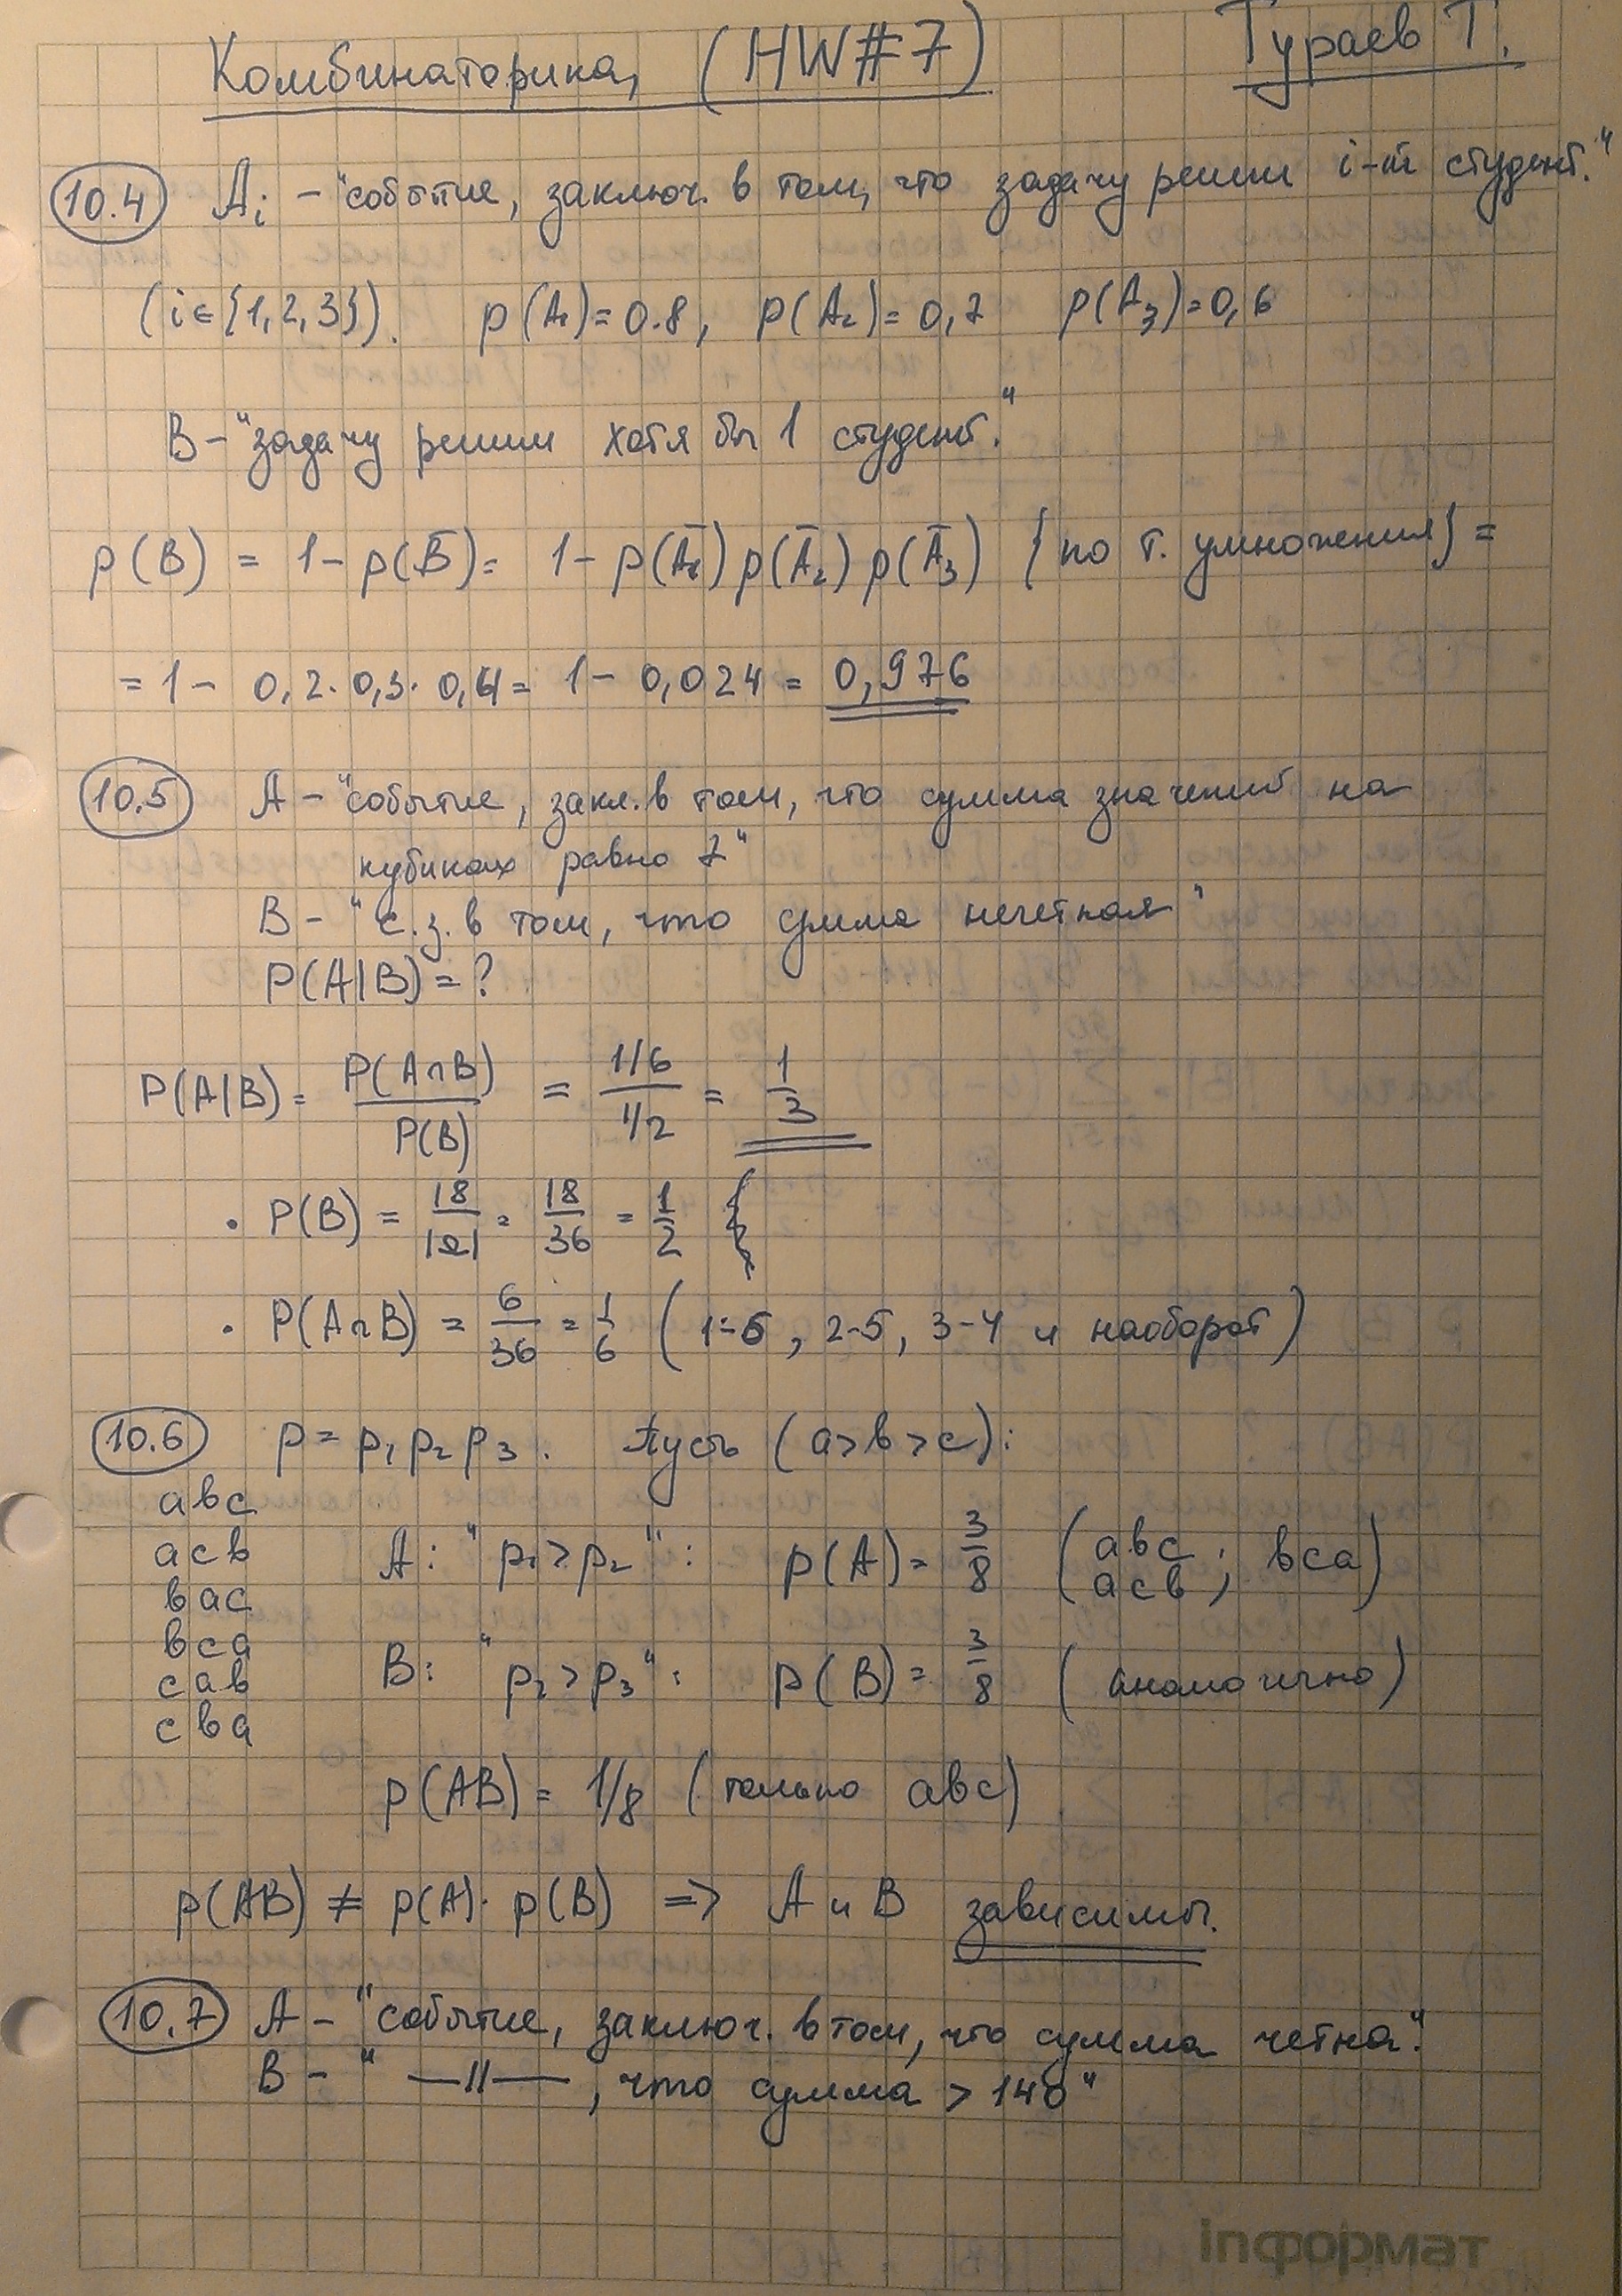 Комбинаторика (HW#7) Тураев Т.
10.4 Aᵢ – "событие, заключ. в том, что задачу решил i-й студент."
(i∈{1,2,3}). p(A₁)=0.8, p(A₂)=0,7 p(A₃)=0,6
B – "задачу решил хотя бы 1 студент."
p(B) = 1 – p(B̅) = 1 – p(A̅₁) p(A̅₂) p(A̅₃) {по т. умножения} =
= 1 – 0,2·0,3·0,4 = 1 – 0,024 = 0,976
10.5 A – "событие, закл. в том, что сумма значений на
кубиках равно 7"
B – "с.з. в том, что сумма нечетная"
P(A|B) = ?
P(A|B) = P(A∩B) / P(B) = 1/6 / 1/2 = 1/3
• P(B) = 18/|Ω| = 18/36 = 1/2
• P(A∩B) = 6/36 = 1/6 (1-6, 2-5, 3-4 и наоборот)
10.6 p = p₁ p₂ p₃. Пусть (a>b>c):
abc
acb A: "p₁>p₂": p(A) = 3/8 (abc; acb; bca)
bac
bca B: "p₂>p₃": p(B) = 3/8 (аналогично)
cab
cba
p(AB) = 1/8 (только abc)
p(AB) ≠ p(A)·p(B) => A и B зависимы.
10.7 A – "событие, заключ. в том, что сумма четна."
B – " —||— , что сумма > 140"
inформат